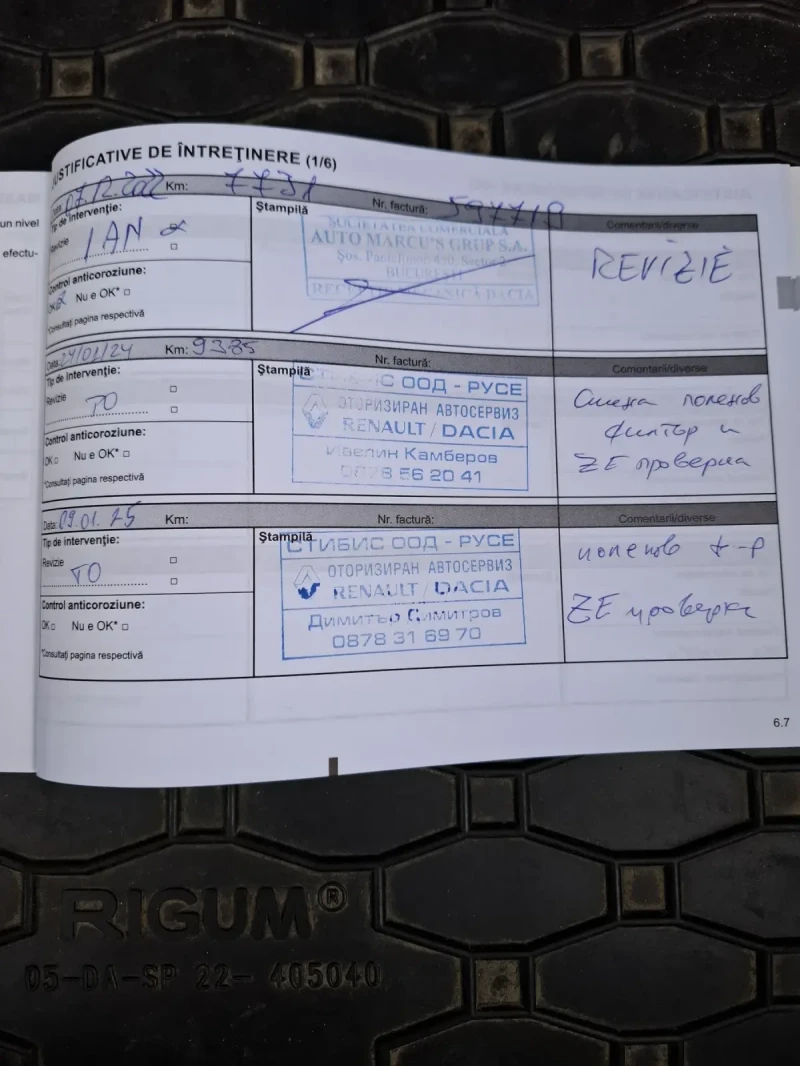 JUSTIFICATIVE DE ÎNTREŢINERE (1/6)
07.12.2022 Km: 7731 Nr. factură: 597719
Tip de intervenţie: Ştampilă Comentarii/diverse
Revizie 1 AN
SOCIETATEA COMERCIALĂ
AUTO MARCU'S GRUP S.A.
Sector 2
BUCUREŞTI
MECANICĂ DACIA
REVIZIE
Control anticoroziune:
OK Nu e OK*
*Consultaţi pagina respectivă
un nivel
efectu-
Data: 24/01/24 Km: 9385 Nr. factură: Comentarii/diverse
Tip de intervenţie: Ştampilă
Revizie
TO
СТИБИС ООД - РУСЕ
ОТОРИЗИРАН АВТОСЕРВИЗ
RENAULT / DACIA
Ивелин Камберов
0878 56 20 41
Смяна поленов
филтър и
ZE проверка
Control anticoroziune:
OK Nu e OK*
*Consultaţi pagina respectivă
Data: 09.01.25 Km: Nr. factură: Comentarii/diverse
Tip de intervenţie: Ştampilă
Revizie
TO
СТИБИС ООД - РУСЕ
ОТОРИЗИРАН АВТОСЕРВИЗ
RENAULT / DACIA
Димитър Димитров
0878 31 69 70
поленов ф-р
ZE проверка
Control anticoroziune:
OK Nu e OK*
*Consultaţi pagina respectivă
6.7
RIGUM®
05-DA-SP 22- 405040